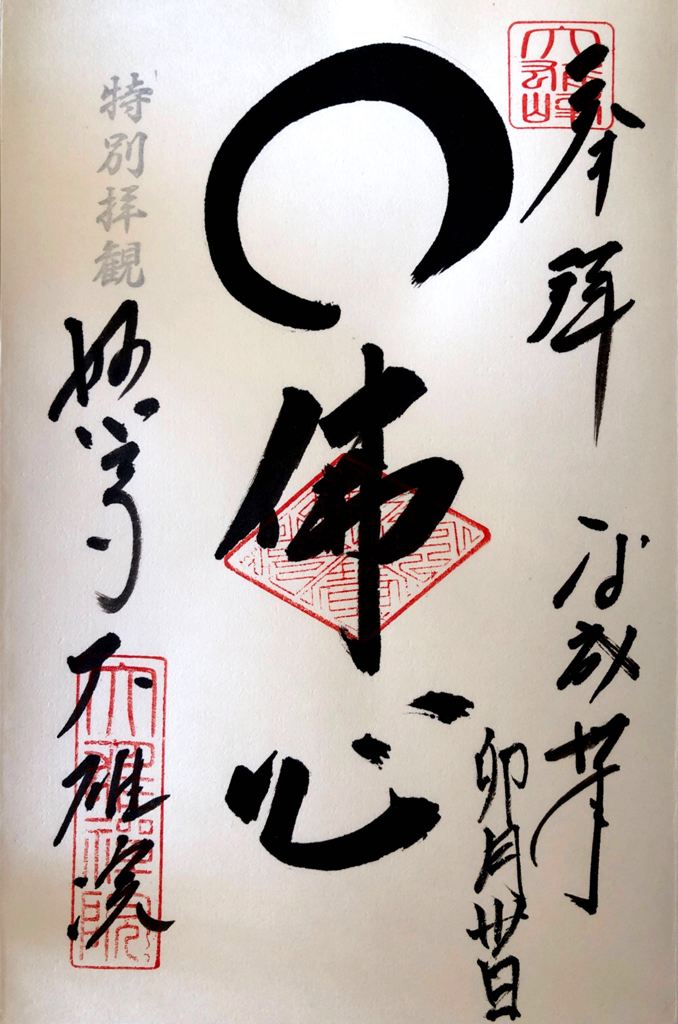 大雄峰
奉拝
平成 年
卯月卅日
佛心
特別拝観
妙心寺 大雄院
大雄禅院